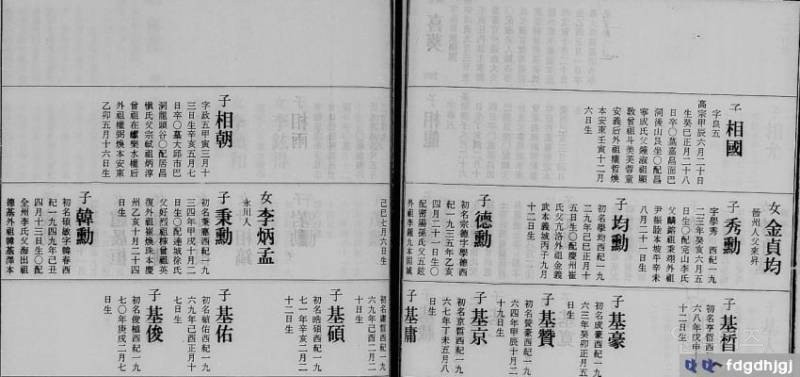 子相國
字良五
高宗甲辰六月二十日
生癸巳正月二十八
日卒○墓嘉昌面巴
洞後山艮坐○配昌
寧成氏父鍾淑祖顯
敎曾祖斗美芙蓉堂
安義后外祖權哲煥
本安東壬寅十二月
六日生
女金貞均
子秀勳
字學秀西紀一九
二三年癸亥六月五
日生○配完山李氏
八月二十一日生
子均勳
初名學均西紀一九
二九年己巳正月十
五日生○配慶州崔
氏父亢洛外祖金義
武本義城丙子九月
十二日生
子德勳
初名宗德字學德西
紀一九三五年乙亥
四月二十一日生○
配密陽孫氏父五鉉
子基晳
初名亨晳西紀一九
六八年戊申
十二日生
子基豪
初名成豪西紀一九
六三年癸卯正月
日生
子基贊
初名贊豪西紀一九
六四年甲辰十月二
十九日生
子基京
初名京哲西紀一九
六七年丁未五月八
日生
子基庸
子相朝
字政五甲寅三月十
三日生辛亥五月七
日卒○墓大邱市巴
洞龍頭谷○配居昌
愼氏父宗斌祖炳淳
曾祖在
外祖權弼煥本安東
乙卯五月十六日生
己巳七月六日生
女李炳孟
永川人
子秉勳
初名秉憲西紀一九
三四年甲戌十月二
日生○配達城徐氏
父好烈祖稼曾祖英
復外祖崔煥珠本慶
州乙亥十月二十四
日生
子韓勳
初名碩敏字韓春西
紀一九四九年己丑
四月十三日生○配
全州李氏父海出祖
德基外祖韓基澤本
六九年己酉二月二
十二日生
子基碩
初名皓碩西紀一九
七一年辛亥二月二
十二日生
子基佑
初名禎佑西紀一九
六九年己酉正月十
七日生
子基俊
初名俊植西紀一九
七〇年庚戌二月七
日生
fdgdhjgj